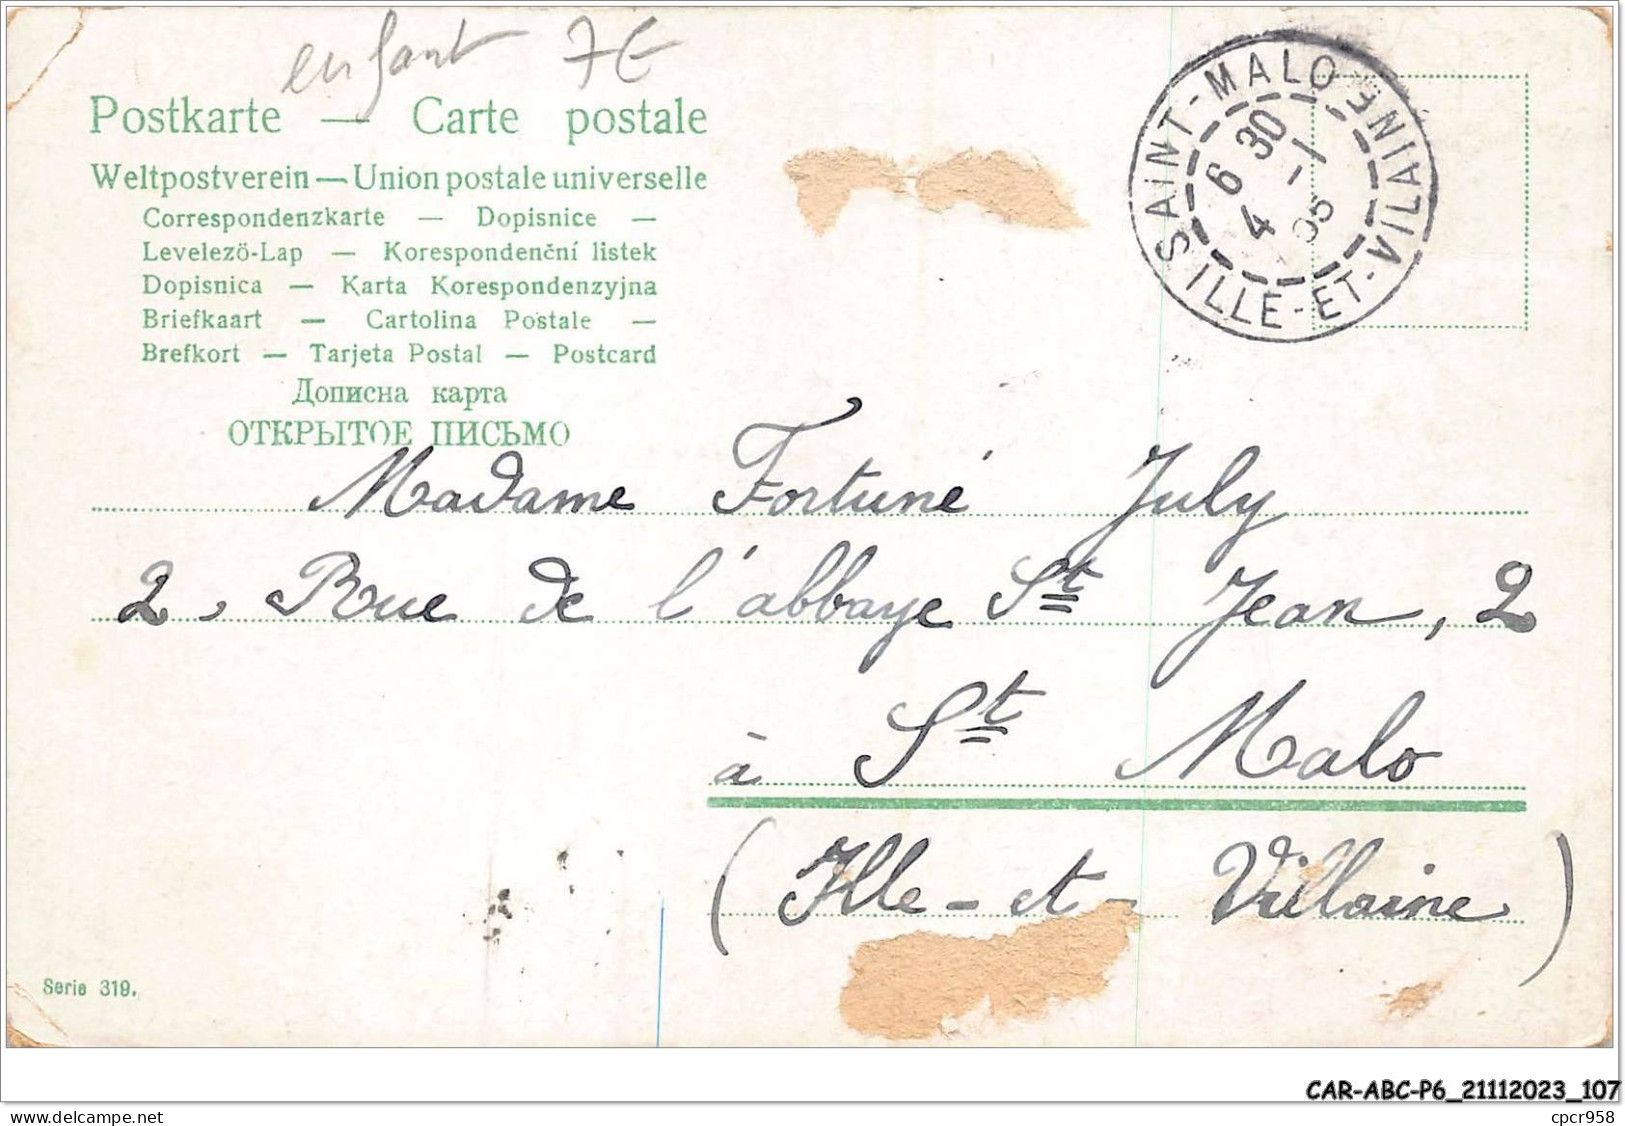 enfant 7€
Postkarte — Carte postale
Weltpostverein — Union postale universelle
Correspondenzkarte — Dopisnice —
Levelező-Lap — Korespondenční listek
Dopisnica — Karta Korespondenzyjna
Briefkaart — Cartolina Postale —
Brefkort — Tarjeta Postal — Postcard
Дописна карта
ОТКРЫТОЕ ПИСЬМО
SAINT-MALO
6 30
4 - 1
05
ILLE-ET-VILAINE
Madame Fortuné July
2, Rue de l'abbaye St Jean, 2
à St Malo
(Ille-et-Villaine)
Serie 319.
CAR-ABC-P6_21112023_107
cartespostalesanciennes.delcampe.net
cpcr958